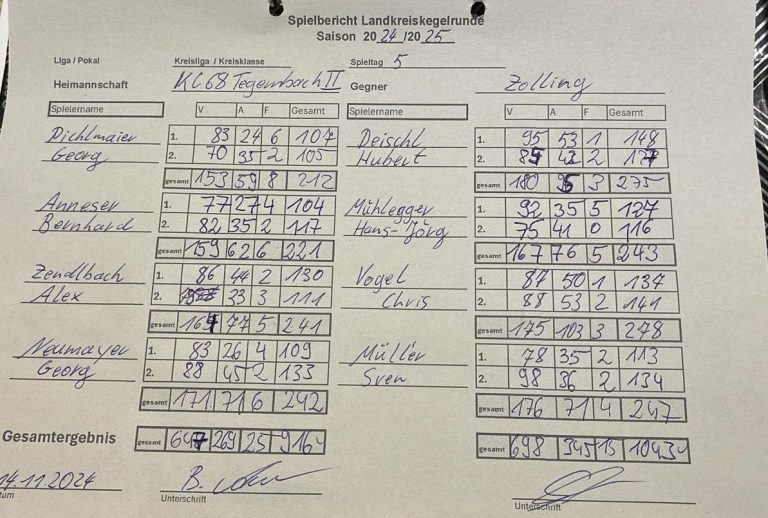 Spielbericht Landkreiskegelrunde
Saison 2024/2025
Liga / Pokal Kreisliga / Kreisklasse Spieltag 5
Heimannschaft KC68 Tegernbach II Gegner Zolling
Spielername V A F Gesamt Spielername V A F Gesamt
Dichlmaier 1. 83 24 6 107 Deischl 1. 95 53 1 148
Georg 2. 70 35 2 105 Hubert 2. 85 42 2 127
gesamt 153 59 8 212 gesamt 180 95 3 275
Anneser 1. 77 27 4 104 Mühlegger 1. 92 35 5 127
Bernhard 2. 82 35 2 117 Hans-Jörg 2. 75 41 0 116
gesamt 159 62 6 221 gesamt 167 76 5 243
Zendlbach 1. 86 44 2 130 Vogel 1. 87 50 1 137
Alex 2. 33 3 111 Chris 2. 88 53 2 141
gesamt 164 77 5 241 gesamt 175 103 3 278
Neumayer 1. 83 26 4 109 Müller 1. 78 35 2 113
Georg 2. 88 45 2 133 Sven 2. 98 36 2 134
gesamt 171 71 6 242 gesamt 176 71 4 247
Gesamtergebnis gesamt 647 269 25 916 gesamt 698 345 15 1043
14.11.2024
tum Unterschrift Unterschrift